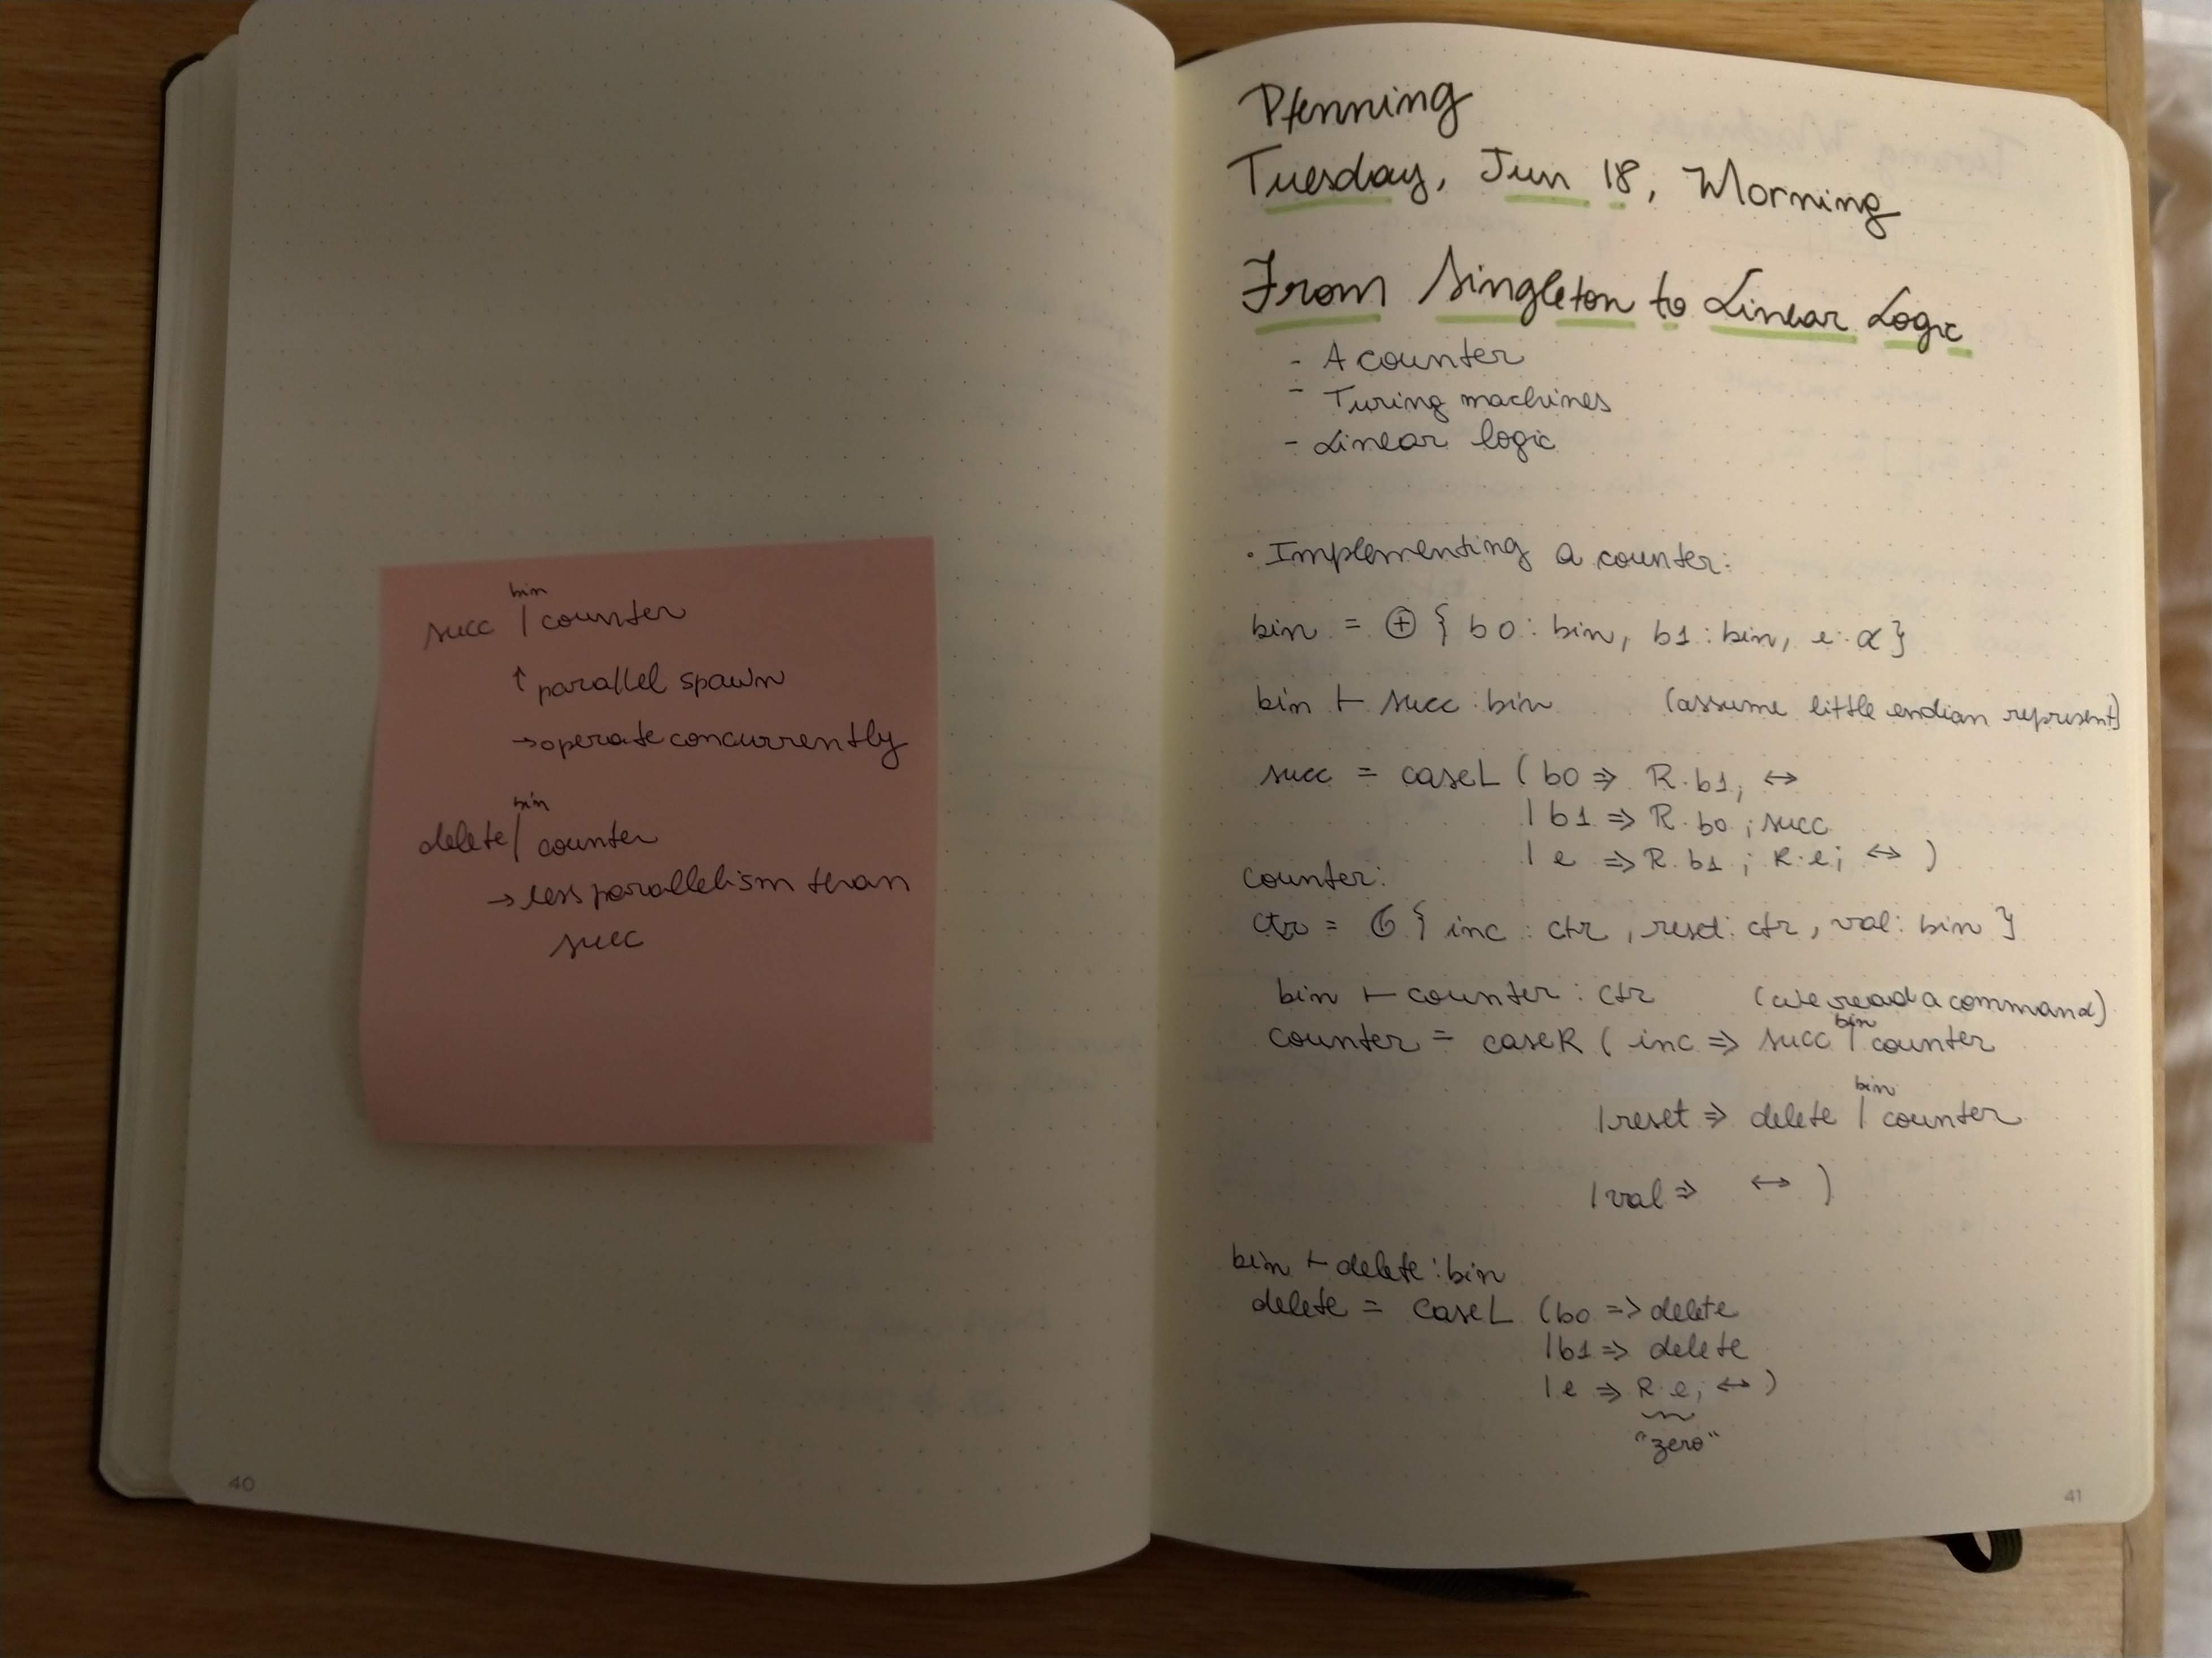 40
succ |bin counter
↑ parallel spawn
→ operate concurrently
delete |bin counter
→ less parallelism than
succ
Pfenning
Tuesday, Jun 18, Morning
From Singleton to Linear Logic
- A counter
- Turing machines
- Linear logic
· Implementing a counter:
bin = ⊕ { b0 : bin, b1 : bin, e : α }
bin ⊢ succ : bin (assume little endian represent)
succ = caseL ( b0 ⇒ R.b1; ↔
| b1 ⇒ R.b0; succ
| e ⇒ R.b1; R.e; ↔ )
counter:
ctr = { inc : ctr, reset : ctr, val : bin }
bin ⊢ counter : ctr (we read a command)
counter = caseR ( inc ⇒ succ |bin counter
| reset ⇒ delete |bin counter
| val ⇒ ↔ )
bin ⊢ delete : bin
delete = caseL (b0 ⇒ delete
| b1 ⇒ delete
| e ⇒ R.e; ↔ )
"zero"
41